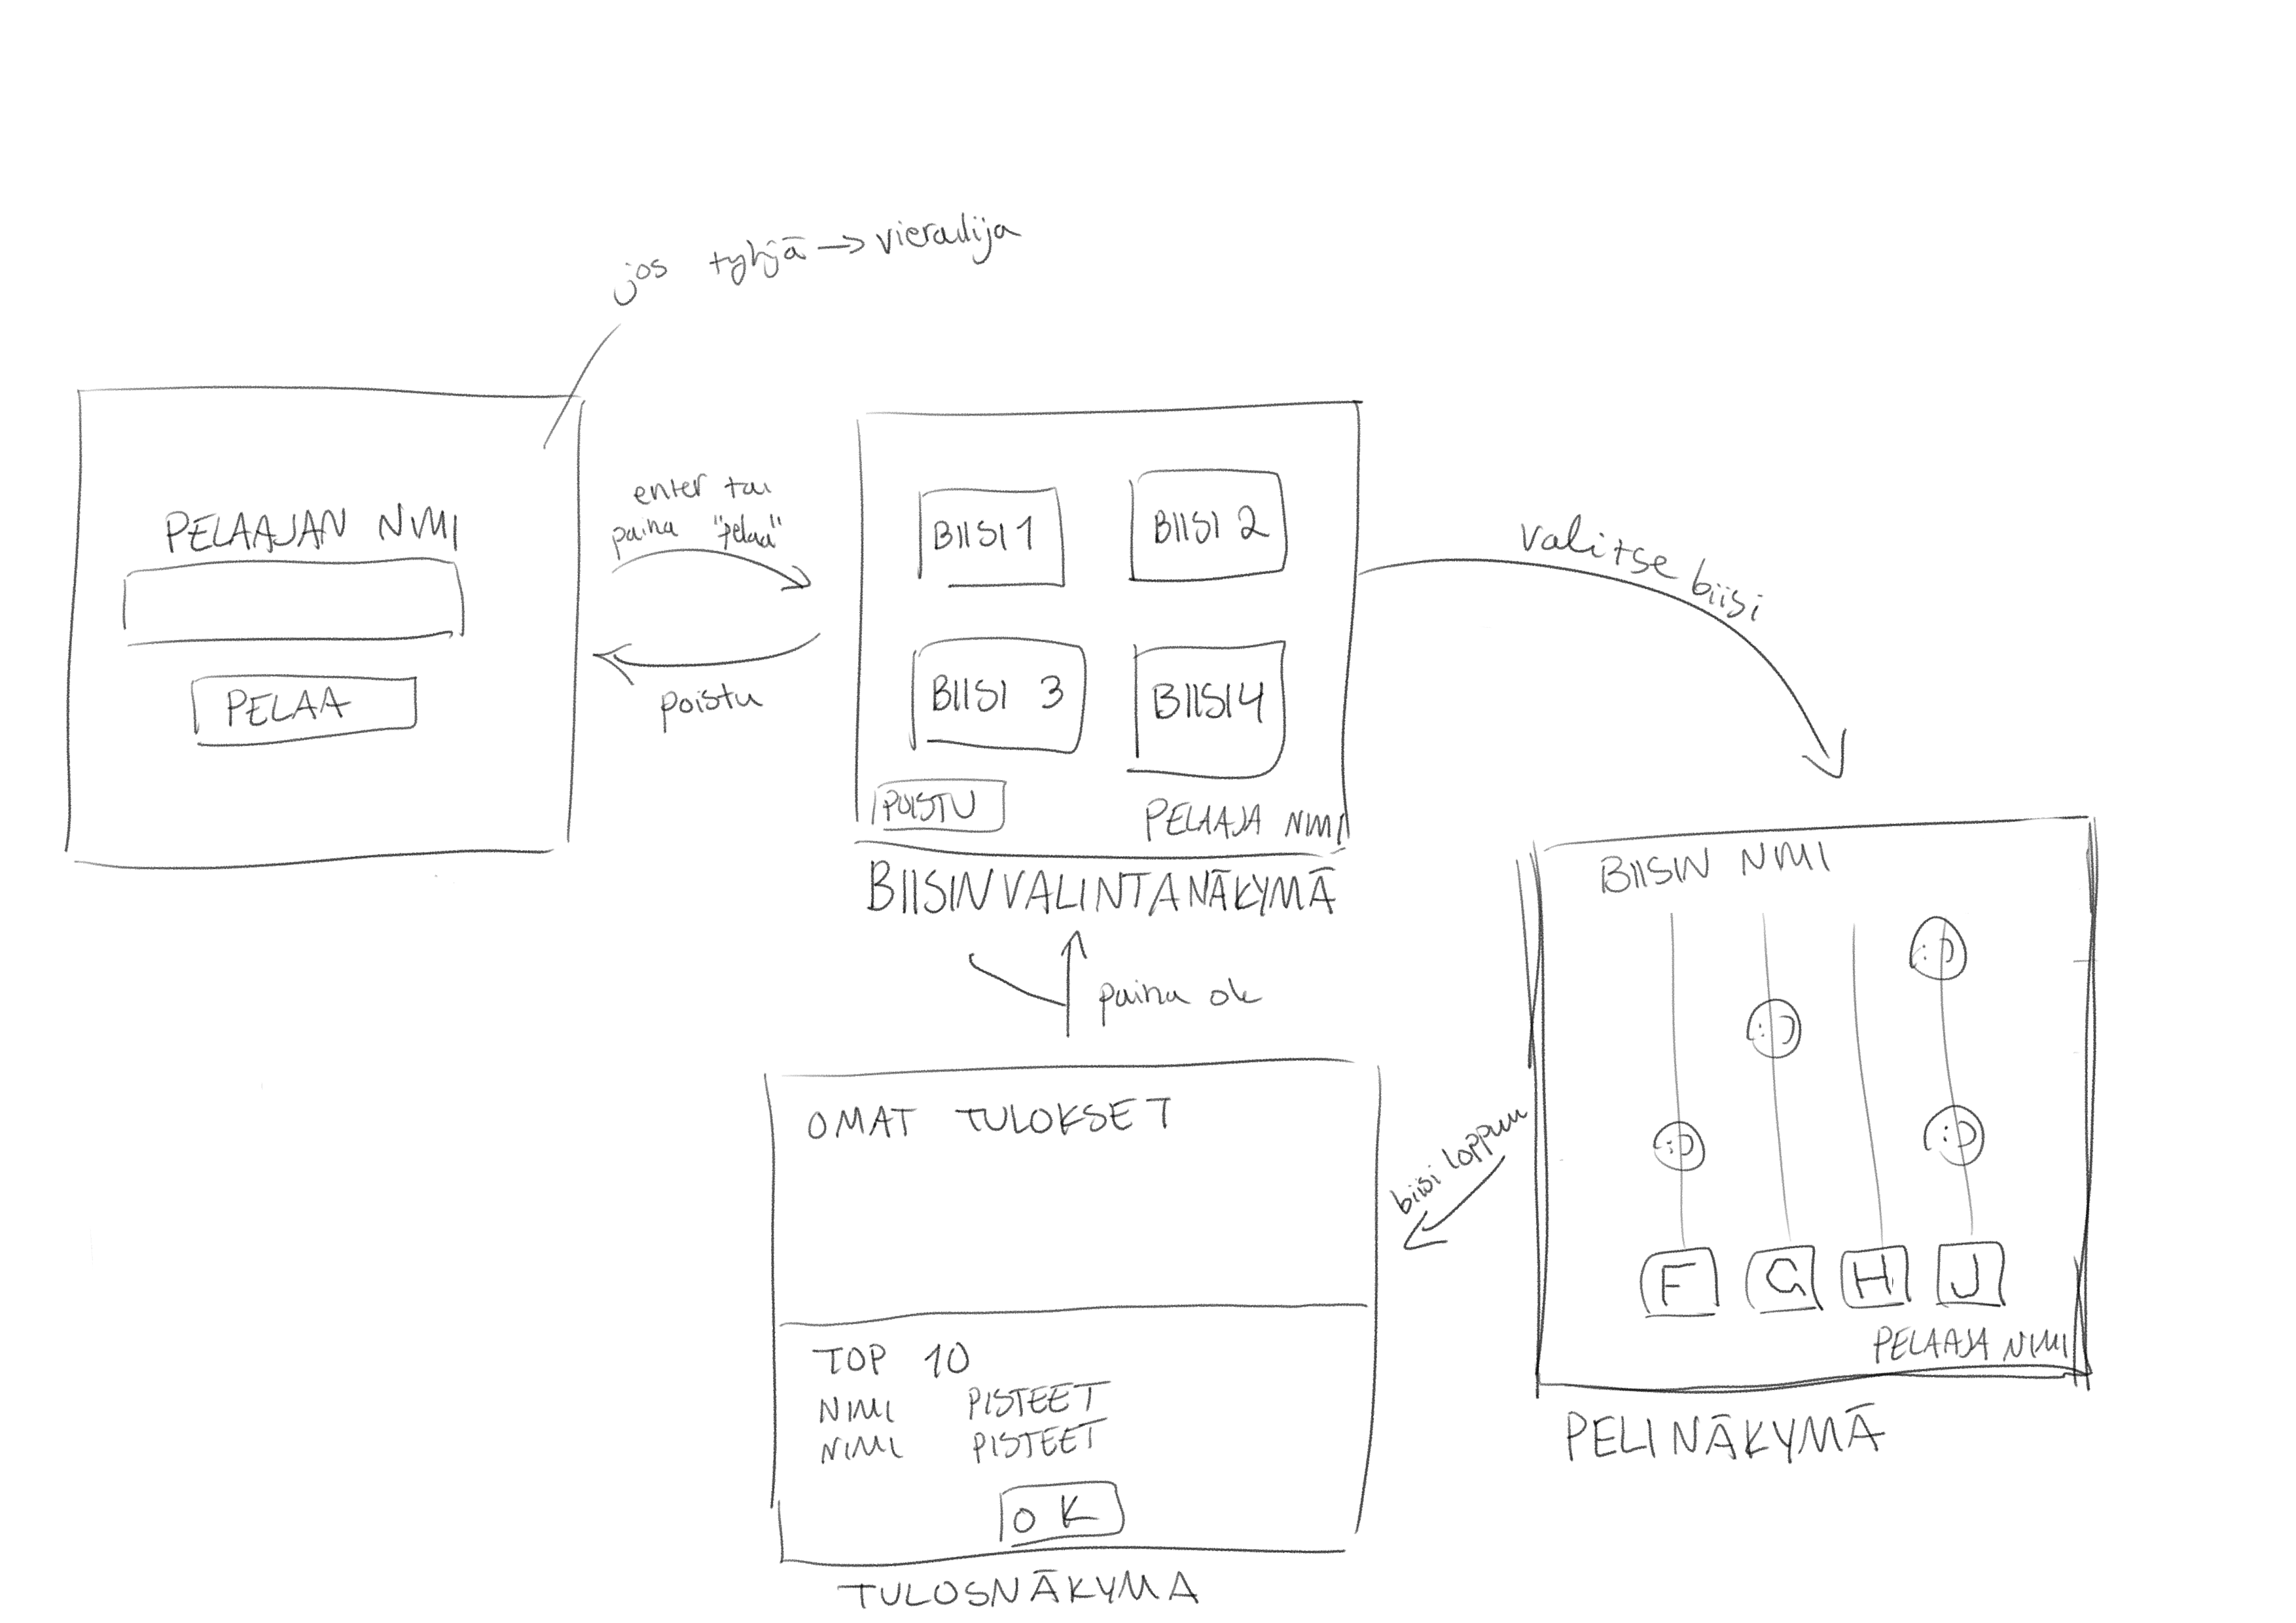 jos tyhjä → vierailija
PELAAJAN NIMI
PELAA
enter tai
paina "pelaa"
poistu
BIISI 1
BIISI 2
BIISI 3
BIISI 4
POISTU
PELAAJA NIMI
BIISINVALINTANÄKYMÄ
valitse biisi
BIISIN NIMI
:D
:D
:D
:D
F
G
H
J
PELAAJA NIMI
PELINÄKYMÄ
biisi loppuu
paina ok
OMAT TULOKSET
TOP 10
NIMI PISTEET
NIMI PISTEET
OK
TULOSNÄKYMA